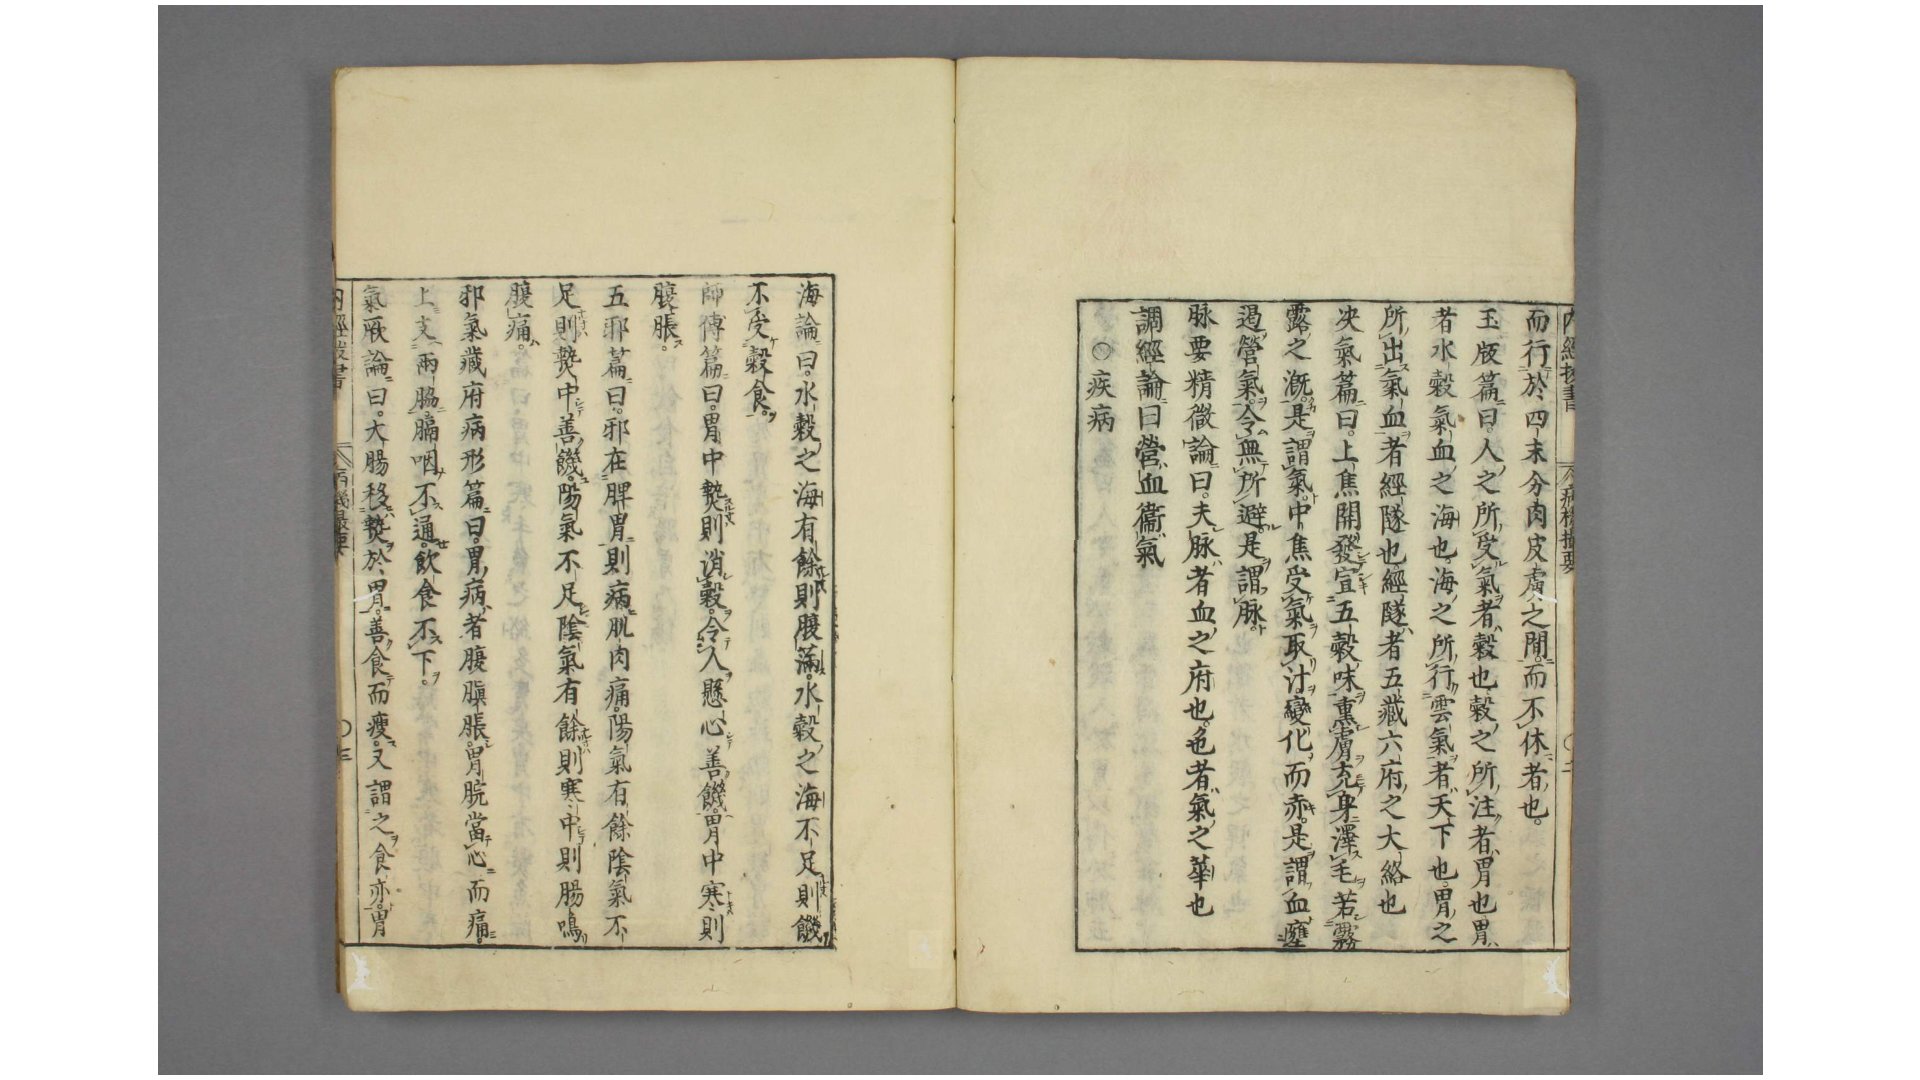 而行於四末分肉皮膚之間而不休者也。
玉版篇曰。人之所受氣者穀也穀之所注者胃也胃
者水穀氣血之海也。海之所行雲氣者天下也。胃之
所出氣血者經隧也。經隧者五藏六府之大絡也
决氣篇曰。上焦開發宣五穀味熏膚充身澤毛若霧
露之溉。是謂氣。中焦受氣取汁變化而赤。是謂血壅
遏營氣。令無所避。是謂脉。
脉要精微論曰。夫脉者血之府也。色者氣之華也
調經論曰營血衞氣
○疾病
海論曰。水穀之海有餘則腹滿。水穀之海不足則饑
不受穀食。
師傳篇曰。胃中㷱則消穀。令人懸心善饑。胃中寒則
腹脹。
五邪篇曰。邪在脾胃則病肌肉痛。陽氣有餘陰氣不
足則㷱中善饑。陽氣不足陰氣有餘則寒中則腸鳴
腹痛。
邪氣藏府病形篇曰。胃病者腹䐜脹。胃脘當心而痛。
上支兩脇。膈咽不通。飲食不下。
氣厥論曰。大腸移㷱於胃。善食而瘦。又謂之食亦。胃